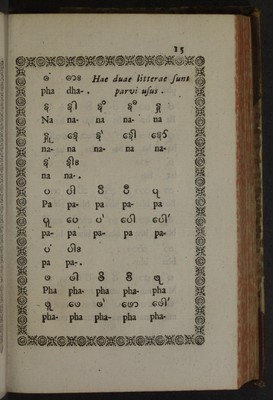 15
ဓံ ဓား Hæ duæ litteræ sunt
pha dha-. parvi usus.
န နါ နိ နီ နု
Na na- na- na- na
နူ နေ နဲ နေါ နော်
na- na- na- na- na-
နံ နါး
na na-.
ပ ပါ ပိ ပီ ပု
Pa pa- pa- pa- pa
ပူ ပေ ပဲ ပေါ ပေါ်
pa- pa pa- pa pa-
ပံ ပါး
pa pa-.
ဖ ဖါ ဖိ ဖီ ဖု
Pha pha- pha pha- pha
ဖူ ဖေ ဖဲ ဖော ဖေါ်
pha- pha pha- pha pha-